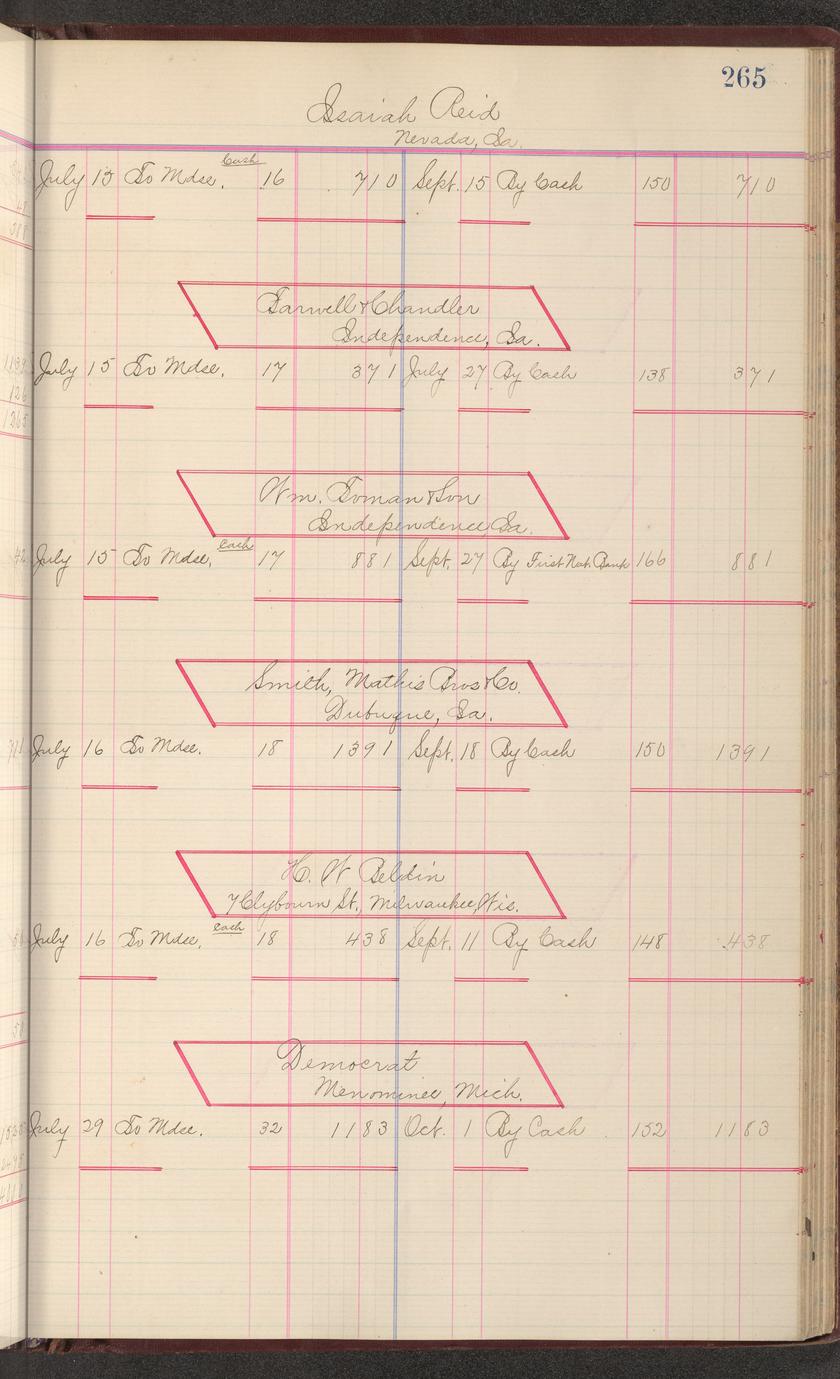 265
Isaiah Reid
Nevada, Ia.
July 15 To Mdse. Cash 16 710 Sept. 15 By Cash 150 710
Farwell & Chandler
Independence, Ia.
July 15 To Mdse. 17 371 July 27 By Cash 138 371
Wm. Toman & Son
Independence, Ia.
July 15 To Mdse. Cash 17 881 Sept. 27 By First Nat. Bank 166 881
Smith, Mathis Bros & Co.
Dubuque, Ia.
July 16 To Mdse. 18 1391 Sept. 18 By Cash 150 1391
H. W Beldin
7 Clybourn St., Milwaukee, Wis.
July 16 To Mdse. Cash 18 438 Sept. 11 By Cash 148 438
Democrat
Menominee, Mich.
July 29 To Mdse. 32 1183 Oct. 1 By Cash 152 1183